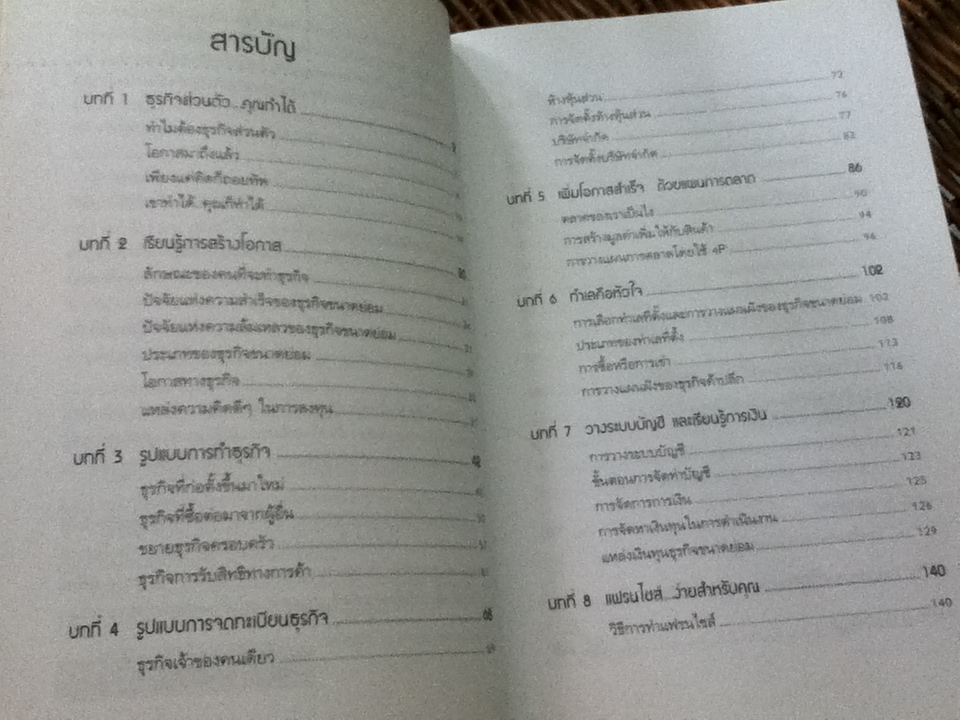 สารบัญ
บทที่ 1 ธุรกิจส่วนตัว...คุณทำได้
ทำไมต้องธุรกิจส่วนตัว
โอกาสมาถึงแล้ว
เพียงแค่คิดก็ถอยทัพ
เขาทำได้ คุณก็ทำได้
บทที่ 2 เรียนรู้การสร้างโอกาส
ลักษณะของคนที่จะทำธุรกิจ
ปัจจัยแห่งความสำเร็จของธุรกิจขนาดย่อม
ปัจจัยแห่งความล้มเหลวของธุรกิจขนาดย่อม
ประเภทของธุรกิจขนาดย่อม
โอกาสทางธุรกิจ
แหล่งความคิดดีๆ ในการลงทุน
บทที่ 3 รูปแบบการทำธุรกิจ
ธุรกิจที่ก่อตั้งขึ้นมาใหม่
ธุรกิจที่ซื้อต่อมาจากผู้อื่น
ขยายธุรกิจครอบครัว
ธุรกิจการรับสิทธิทางการค้า
บทที่ 4 รูปแบบการจดทะเบียนธุรกิจ
ธุรกิจเจ้าของคนเดียว
ห้างหุ้นส่วน 72
การจัดตั้งห้างหุ้นส่วน 76
บริษัทจำกัด 77
การจัดตั้งบริษัทจำกัด 82
บทที่ 5 เพิ่มโอกาสสำเร็จ ด้วยแผนการตลาด 86
ตลาดของเราเป็นไง 90
การสร้างมูลค่าเพิ่มให้กับสินค้า 94
การวางแผนการตลาดโดยใช้ 4P 96
บทที่ 6 ทำเลคือหัวใจ 102
การเลือกทำเลที่ตั้งและการวางแผนผังของธุรกิจขนาดย่อม 102
ประเภทของทำเลที่ตั้ง 108
การซื้อหรือการเช่า 113
การวางแผนผังของธุรกิจค้าปลีก 116
บทที่ 7 วางระบบบัญชี และเรียนรู้การเงิน 120
การวางระบบบัญชี 121
ขั้นตอนการจัดทำบัญชี 123
การจัดการการเงิน 125
การจัดหาเงินทุนในการดำเนินงาน 126
แหล่งเงินทุนธุรกิจขนาดย่อม 129
บทที่ 8 แฟรนไชส์...ง่ายสำหรับคุณ 140
วิธีการทำแฟรนไชส์ 140